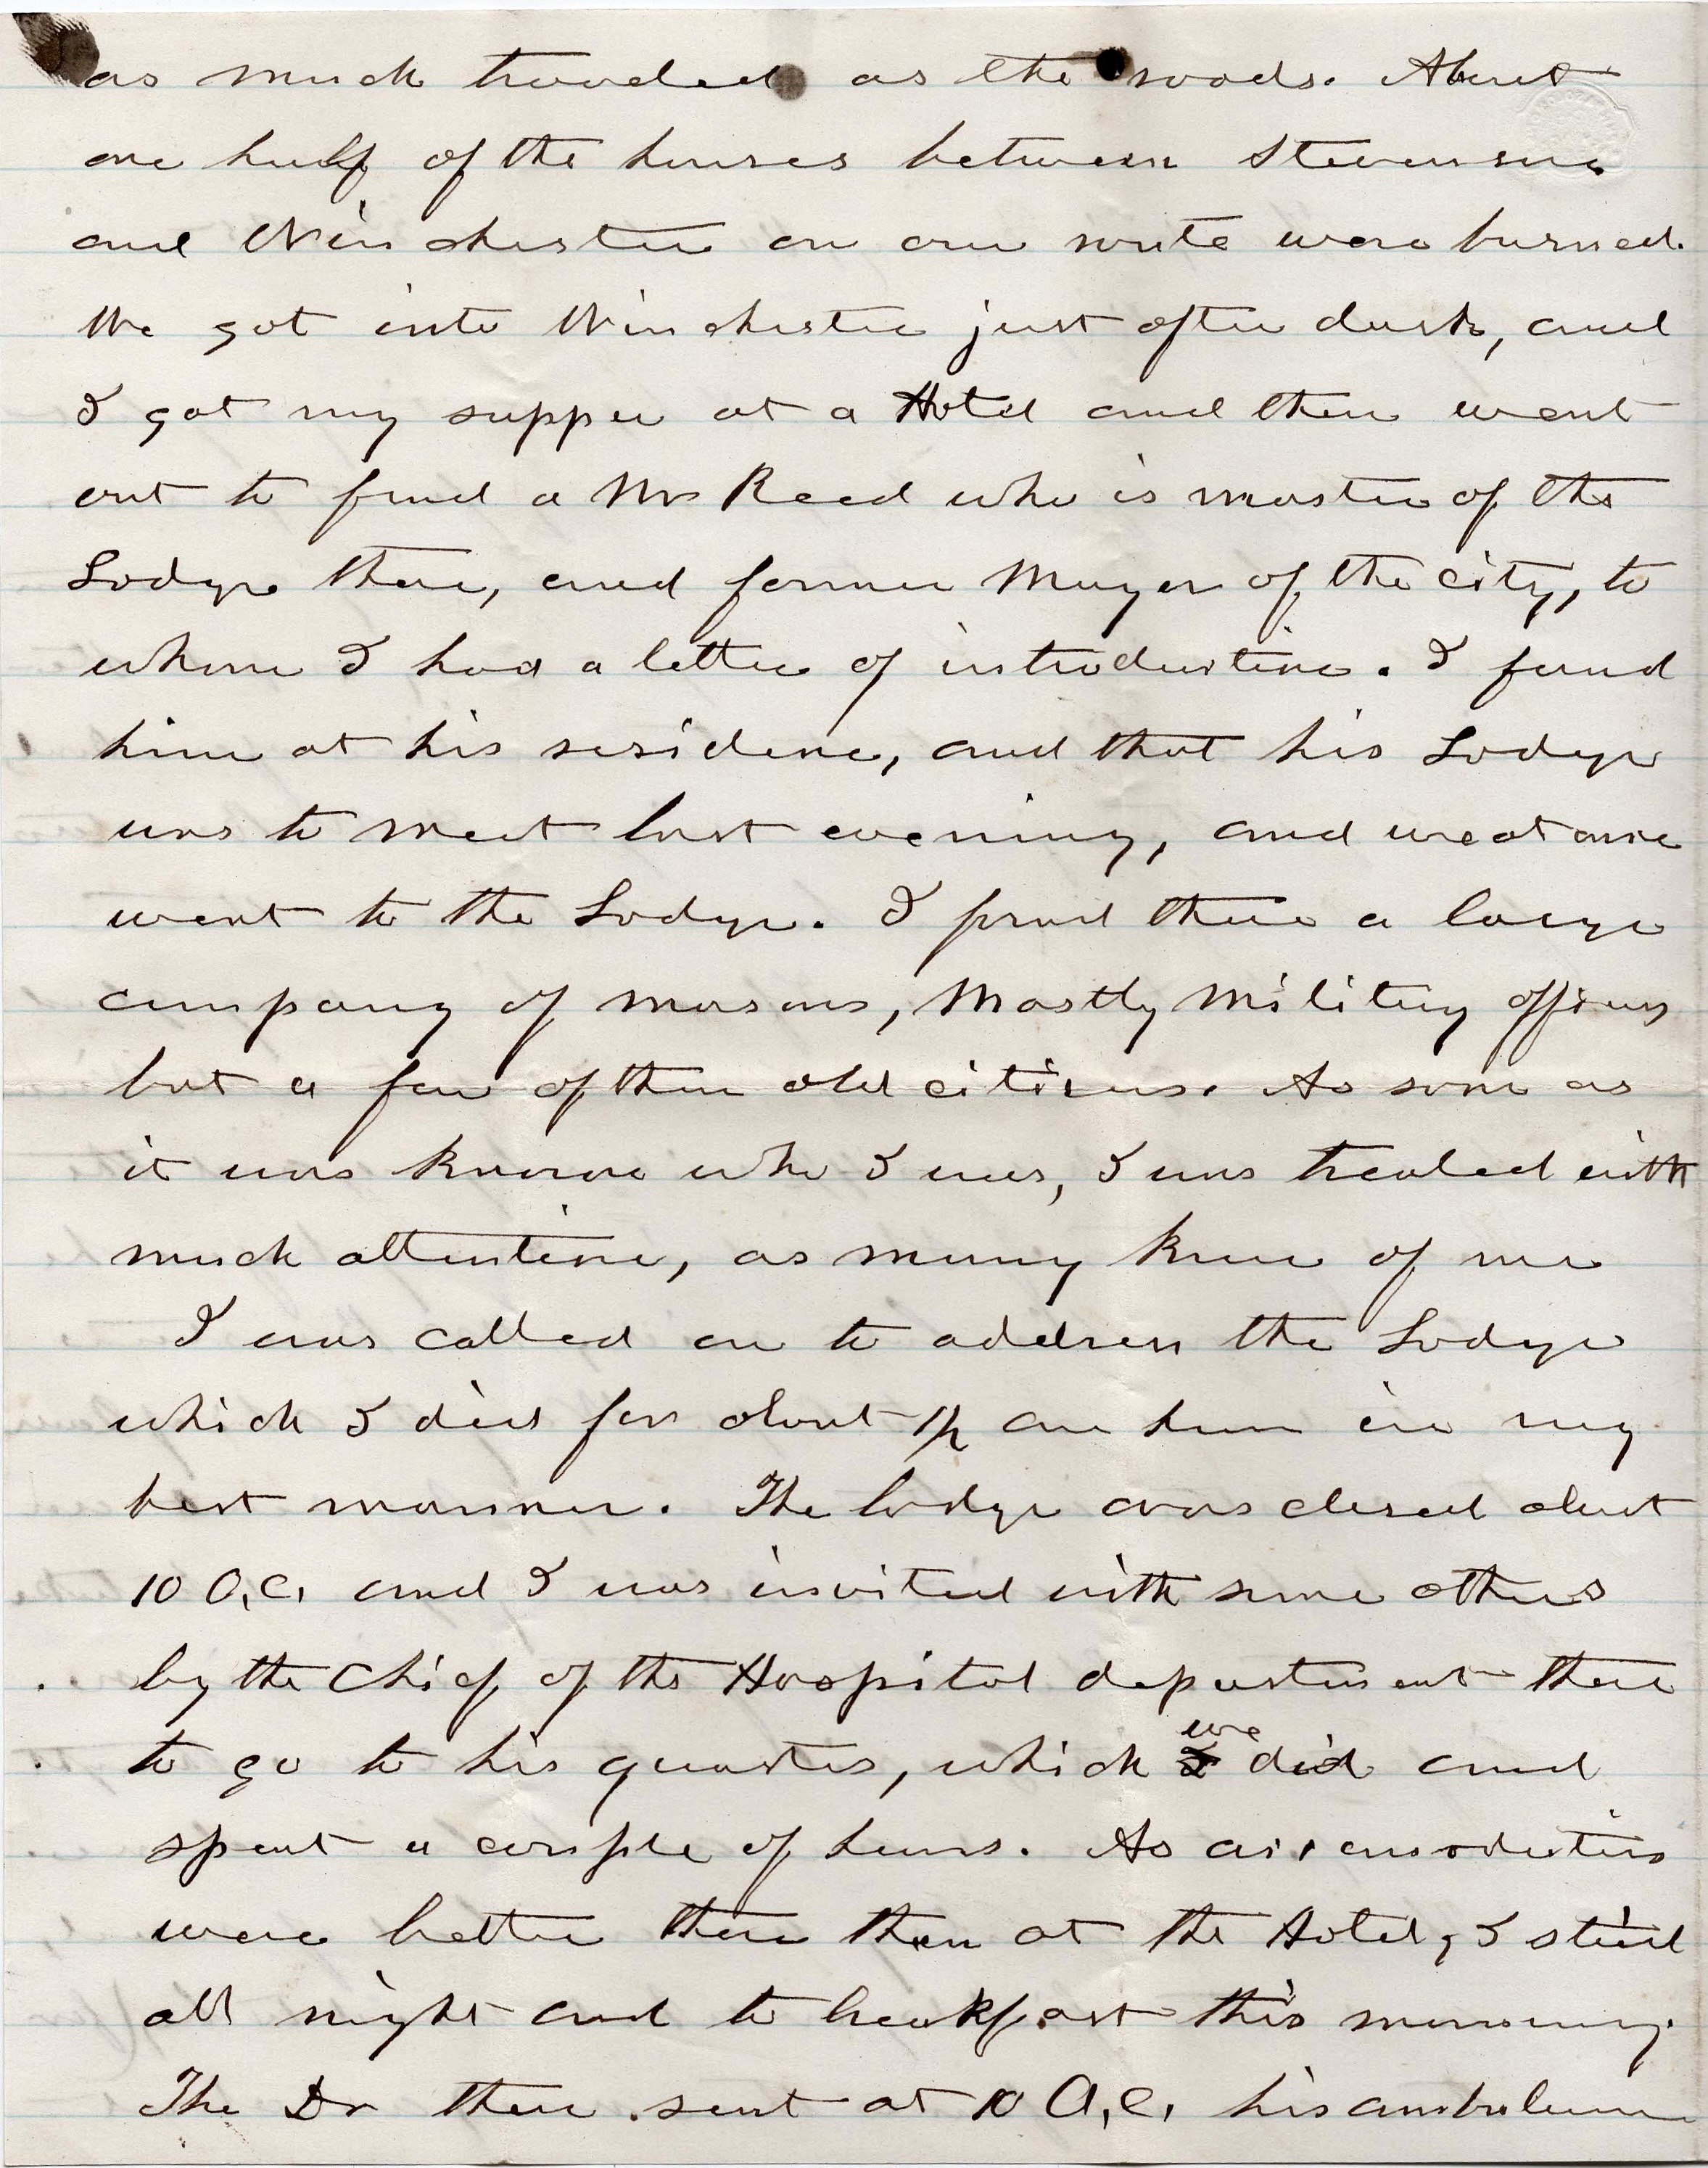 as much traveled as the roads. About
one half of the houses between Stevenson
and Winchester on our route were burned.
We got into Winchester just after dusk, and
I got my supper at a Hotel and then went
out to find a Mr Reed who is master of the
Lodge there, and former Mayor of the city, to
whom I had a letter of introduction. I found
him at his residence, and that his Lodge
was to meet last evening, and we at once
went to the Lodge. I found there a large
company of masons, Mostly Military officers
but a few of them old citizens. As soon as
it was known who I was, I was treated with
much attention, as many knew of me
I was called on to address the Lodge
which I did for about 1/2 an hour in my
best manner. The lodge was closed about
10 O,C, and I was invited with some others
by the Chief of the Hospital department there
to go to his quarters, which we did and
spent a couple of hours. As accomodations
were better there than at the Hotel, I staid
all night and to breakfast this morning.
The Dr then sent at 10 O,C, his ambulance